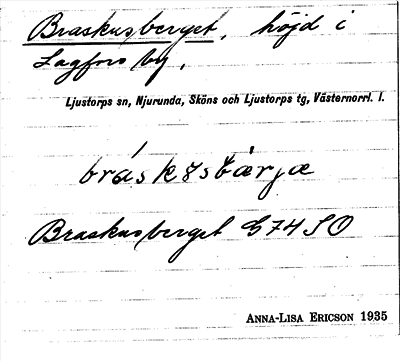 Braskusberget, höjd i
Lagfors by,
Ljustorps sn, Njurunda, Sköns och Ljustorps tg, Västernorrl. l.
Braskusberget G74 SO
ANNA-LISA ERICSON 1935